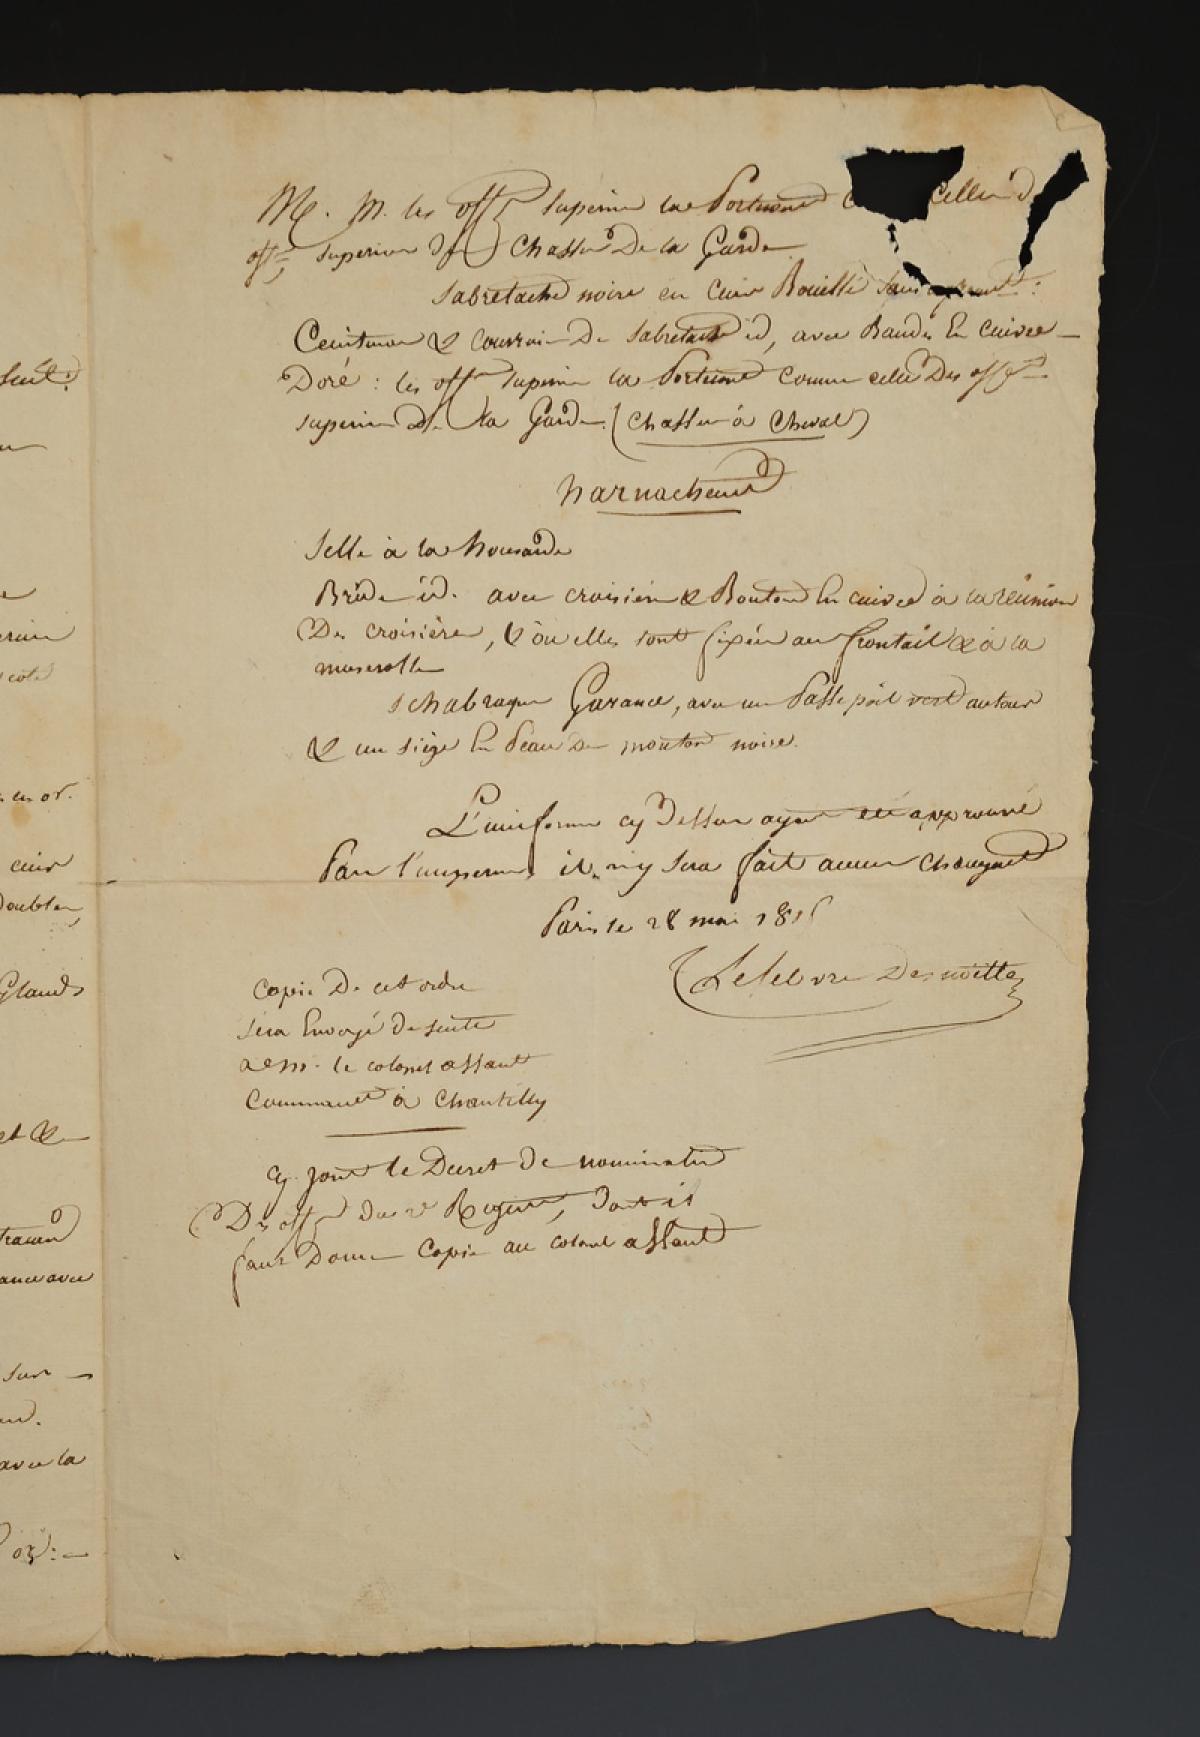 sert.
or.
cuir
Doubler,
Glands
et &
avec
sur —
avec la
or : —
M. M. les off.rs superieurs la Porteront celle des
off.rs superieurs des Chasseurs De la Garde
Sabretache noire en Cuir Bouilli sans
Ceinturon & courroie De Sabretache id, avec Bandes En cuivre —
Doré : les off.rs superieurs la Porteront comme celle Des off.rs
superieurs De la Garde. (Chasseurs à Cheval)
harnachement
Selle à la housarde
Bride id. avec croisière & Boutons En cuivre à la réunion
Des croisières, & où elles sont fixées au frontail & à la
muserolle
schabraque Garance, avec un Passe poil vert autour
& un siège En Peau De mouton noire.
L'uniforme cy Dessus ayant été approuvé
Par l'empereur, il n'y sera fait aucun changement
Paris le 28 mai 1815
Lefebvre Desnoëttes
Copie De cet ordre
sera Envoyé de suite
a m. le colonel assant
Commandant à Chantilly
Cy Joint le Decret De nomination
Des off.rs du 2e Regiment, Dont il
faut Donner Copie au colonel assant